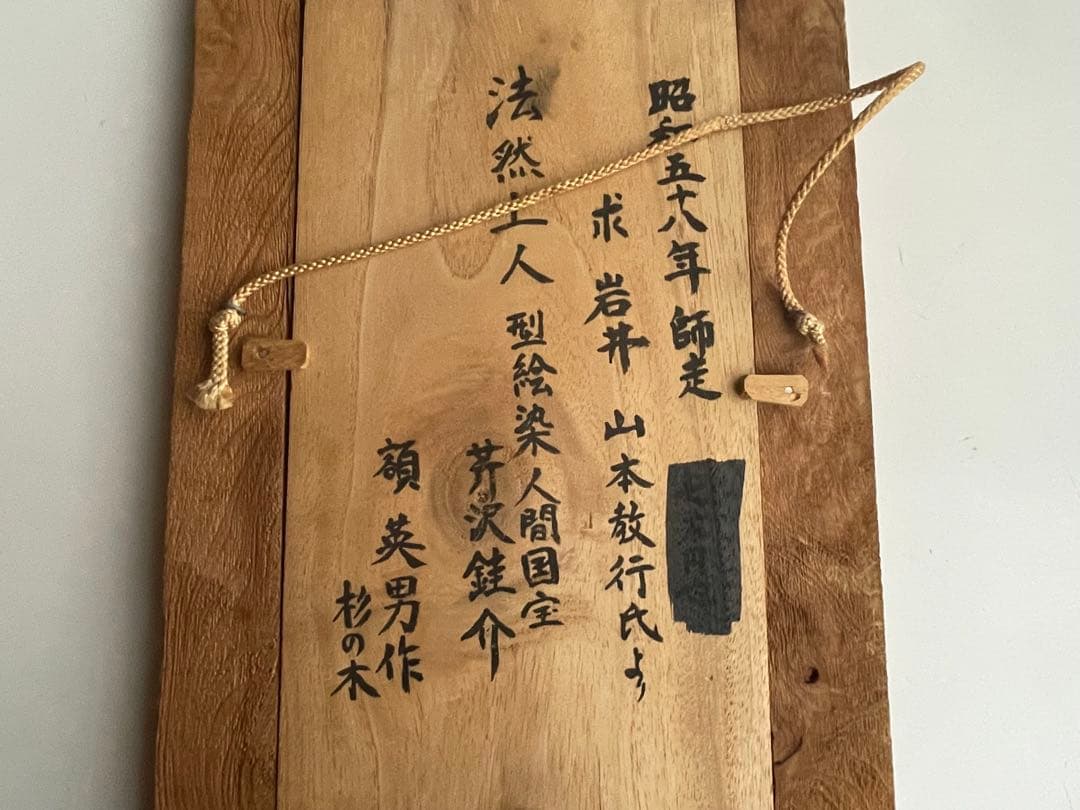 昭和五十八年 師走
求 岩井 山本教行氏より
法然上人 型絵染 人間国宝
芹沢銈介
額 英男作
杉の木